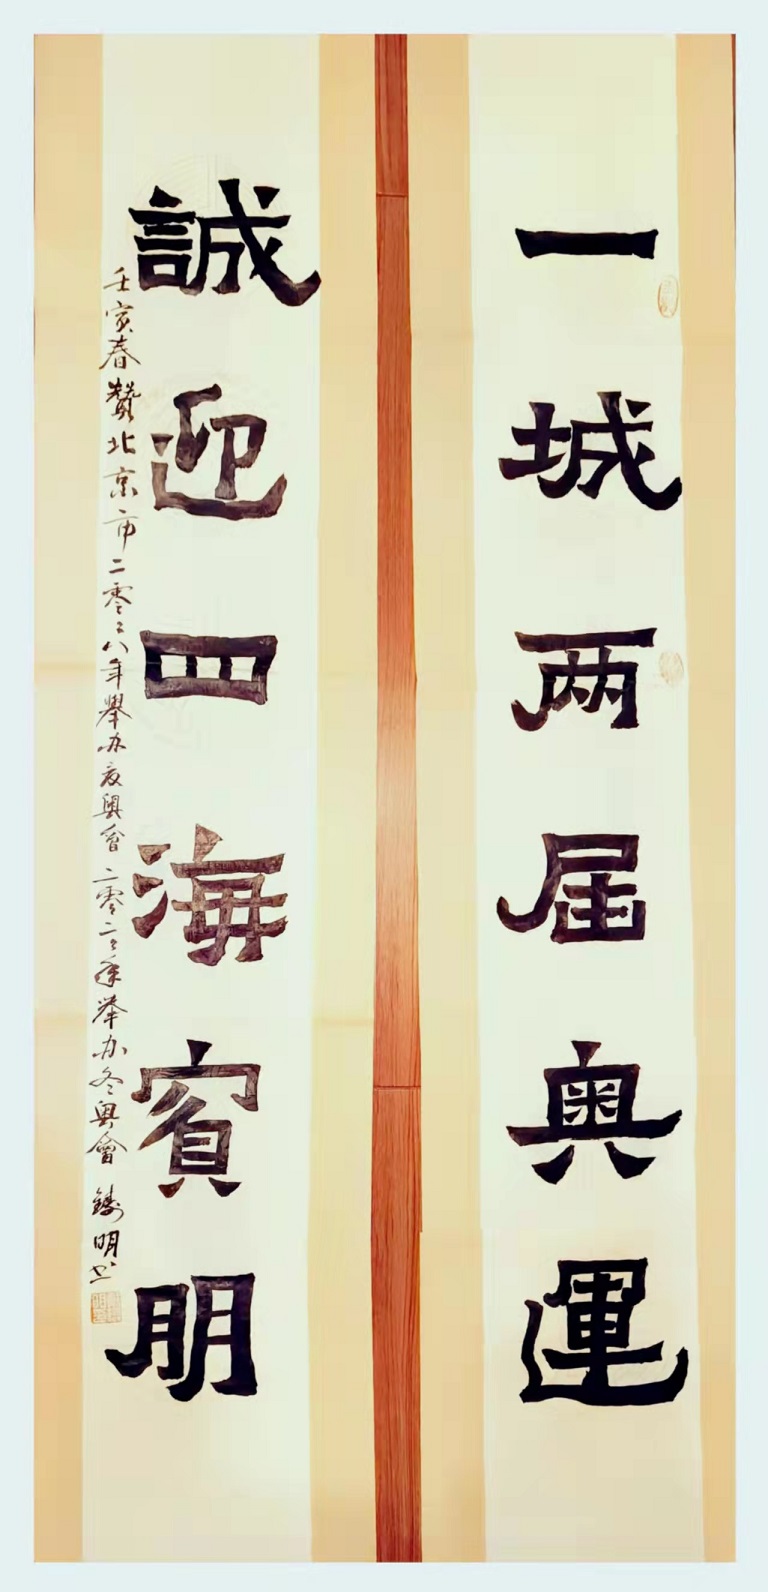 一城两届奥運
誠迎四海賓朋
壬寅春贊北京市二零零八年舉办夏奧會二零二二年举办冬奧會 鑄明书